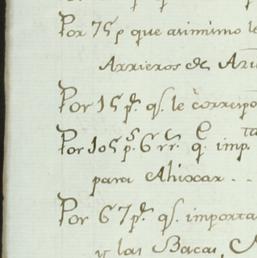 Por 75 p que asimismo le
Arrieros de
Por 15 p.s q.s le correspo
Por 105 p.s 6 rr.s q. imp.ta
para Ahiocar
Por 67 p.s q.s importa
y las Bacas,